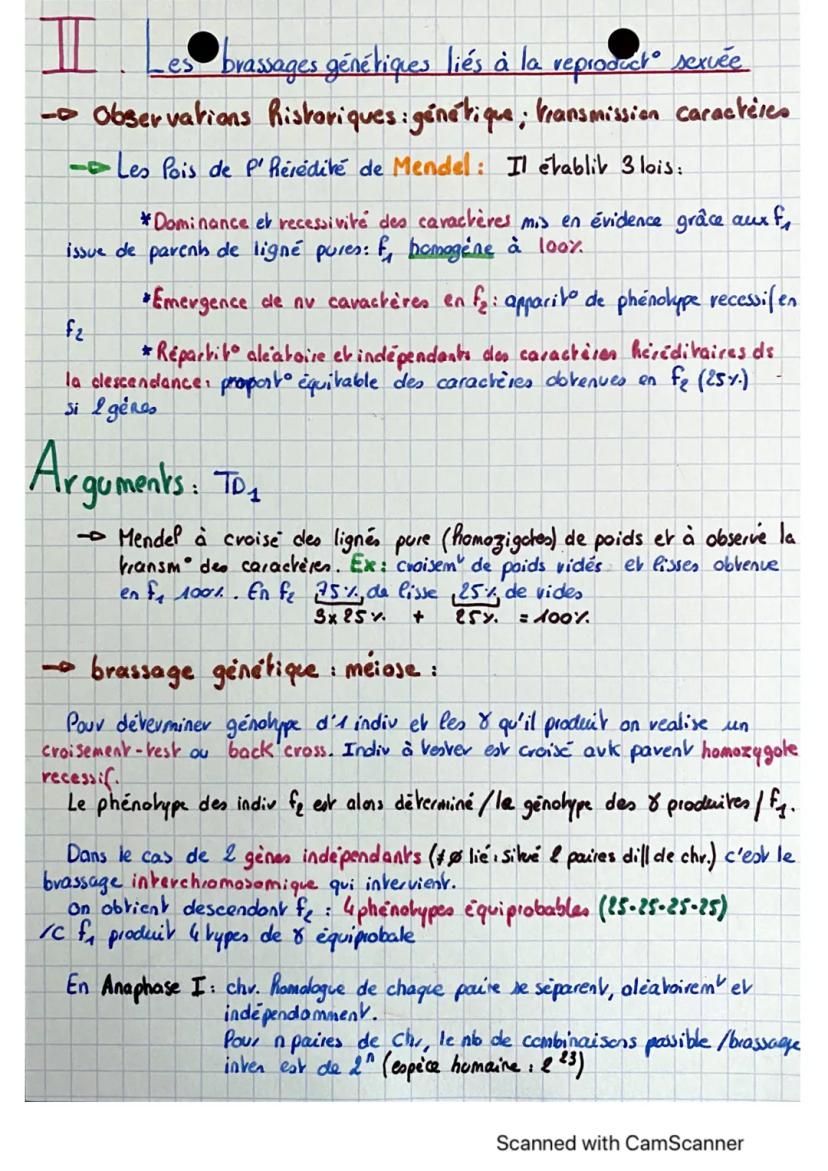 II. Les brassages génétiques liés à la reproduct° sexuée
→ Observations historiques : génétique ; transmission caractères
→ Les lois de l'hérédité de Mendel : Il établit 3 lois :
*Dominance et recessivité des caractères mis en évidence grâce aux f1
issue de parents de ligné pures : f1 homogène à 100%
*Emergence de nv caractères en f2 : apparit° de phénotype recessif en
f2
*Répartit° aléatoire et indépendants des caractères héréditaires ds
la descendance : proport° équitable des caractères obtenues en f2 (25%)
si 2 gènes
Arguments : TD1
→ Mendel à croisé des lignés pure (homozigotes) de poids et à observé la
transm° des caractères. Ex : croisemt de poids vidés et lisses obtenue
en f1 100%. En f2 75% de lisse 25% de vides
3x25% + 25% = 100%
→ brassage génétique : méiose :
Pour déterminer génotype d'1 indiv et les γ qu'il produit on realise un
croisement-test ou back cross. Indiv à tester est croisé avk parent homozygote
recessif.
Le phénotype des indiv f2 est alors déterminé / le génotype des γ produites / f1.
Dans le cas de 2 gènes indépendants (≠ ø lié : situé 2 paires diff de chr.) c'est le
brassage interchromosomique qui intervient.
On obtient descendant f2 : 4 phénotypes équiprobables (25-25-25-25)
/C f1 produit 4 types de γ équiprobale
En Anaphase I : chr. homologue de chaque paire se séparent, aléatoiremt et
indépendomment.
Pour n paires de chr, le nb de combinaisons possible / brassage
inter est de 2^n (espèce humaine : 2^23)
Scanned with CamScanner